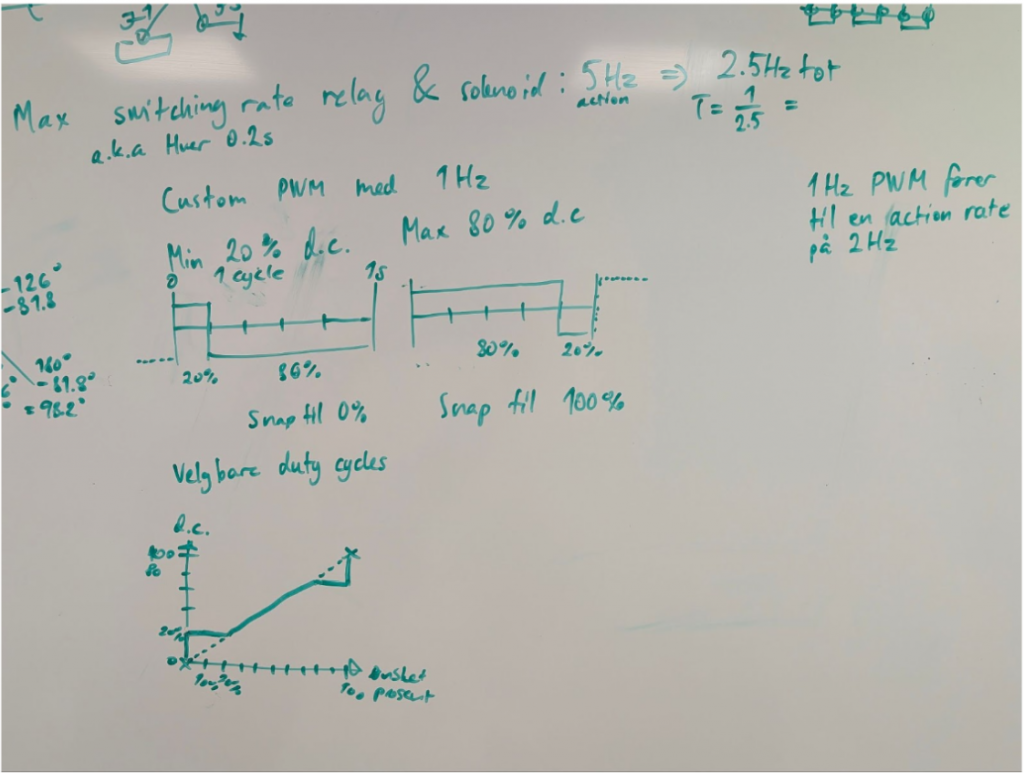 Max switching rate relay & solenoid : 5Hz => 2.5Hz tot
action
T = 1/2.5 =
a.k.a Hver 0.2s
Custom PWM med 1Hz
1Hz PWM fører
til en action rate
på 2Hz
Min 20% d.c.
Max 80% d.c
0 1 cycle 1s
20% 80%
80% 20%
Snap til 0%
Snap til 100%
-126°
-81.8
180°
-81.8°
= 98.2°
Velgbare duty cycles
d.c.
100
80
20%
0
10% 20%
100
ønsket
prosent